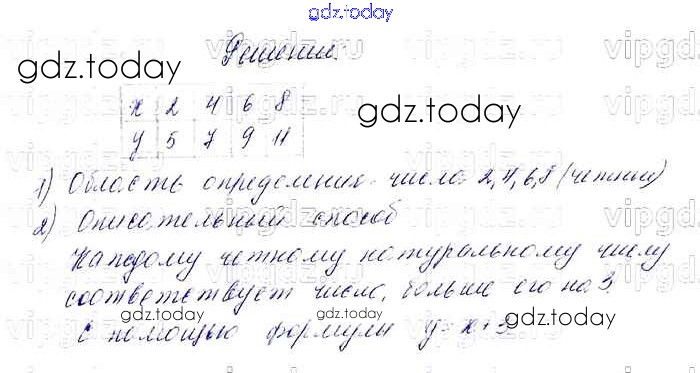 gdz.today
Решение.
gdz.today
x 2 4 6 8
gdz.today
y 5 7 9 11
1) Область определения - числа 2, 4, 6, 8 (четные)
2) Описательный способ
gdz.today
Каждому четному натуральному числу
соответствует число, больше его на 3.
gdz.today
gdz.today
С помощью формулы y = x + 3